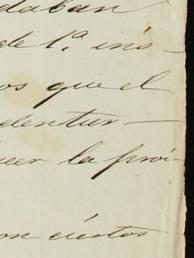 daban
de 1ª ins-
os que el
dentur-
cer la prói-
on ciertos